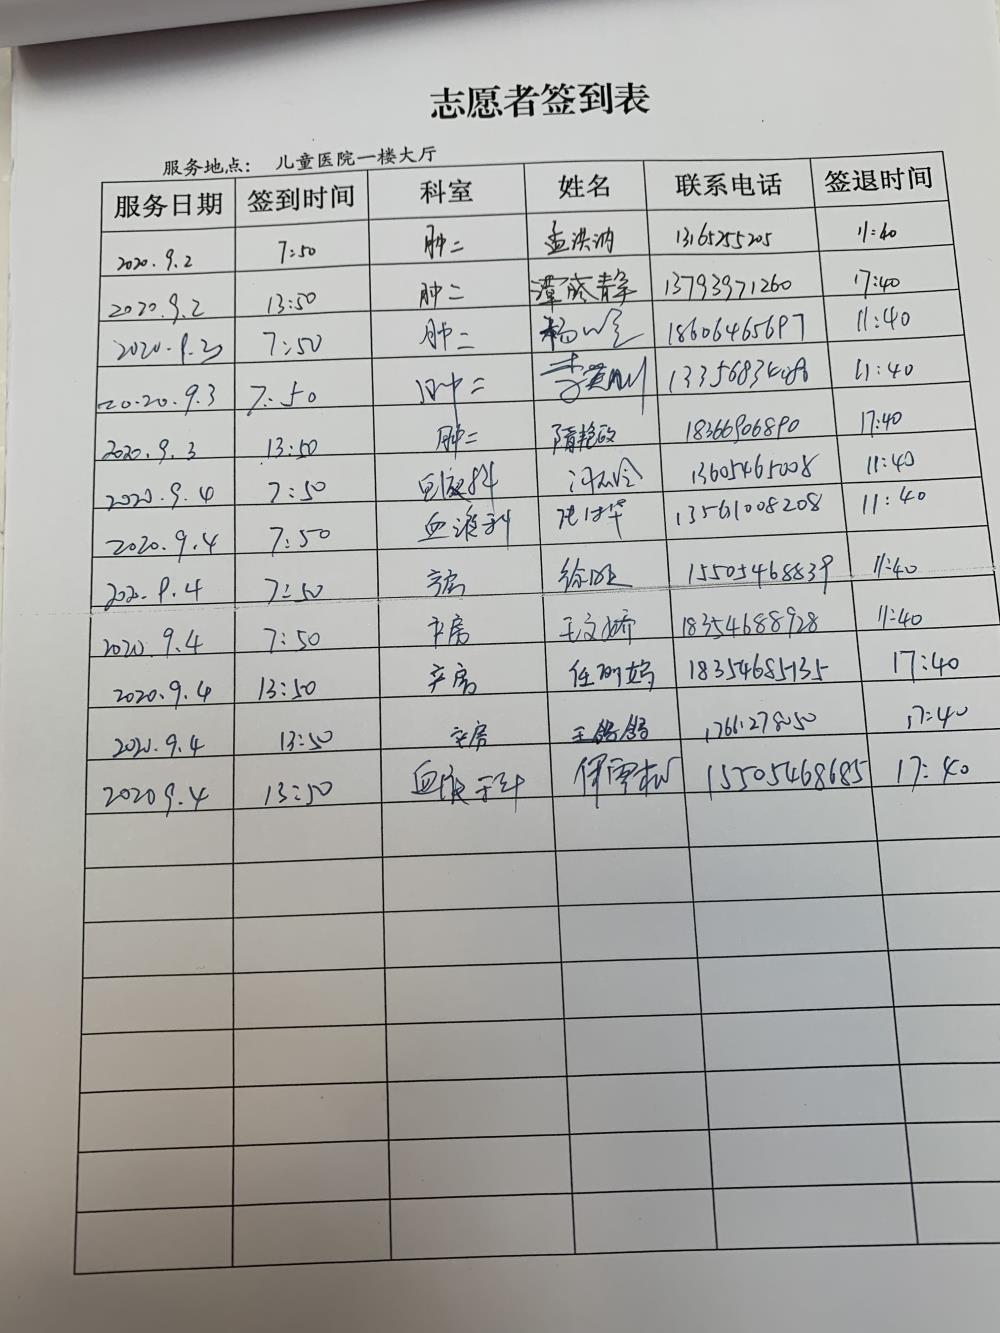 志愿者签到表
服务地点： 儿童医院一楼大厅
服务日期 签到时间 科室 姓名 联系电话 签退时间
2020.9.2 7:50 肿二 孟洪讷 13165255205 11:40
2020.9.2 13:50 肿二 静 13793971260 17:40
7:50 肿二 杨 18606465697 11:40
2020.9.3 7:50 肿二 李 11:40
2020.9.3 13:50 肿二 隋艳 18366906890 17:40
2020.9.4 7:50 血液科 13605465008 11:40
2020.9.4 7:50 血液科 13561008208 11:40
2020.9.4 7:50 产房 徐 15505468839 11:40
2020.9.4 7:50 产房 王文娇 18354688928 11:40
2020.9.4 13:50 产房 任 18354685135 17:40
2020.9.4 13:50 产房 王 17661278050 17:40
2020 9.4 13:50 血液科 伊雪松 15505468685 17:40